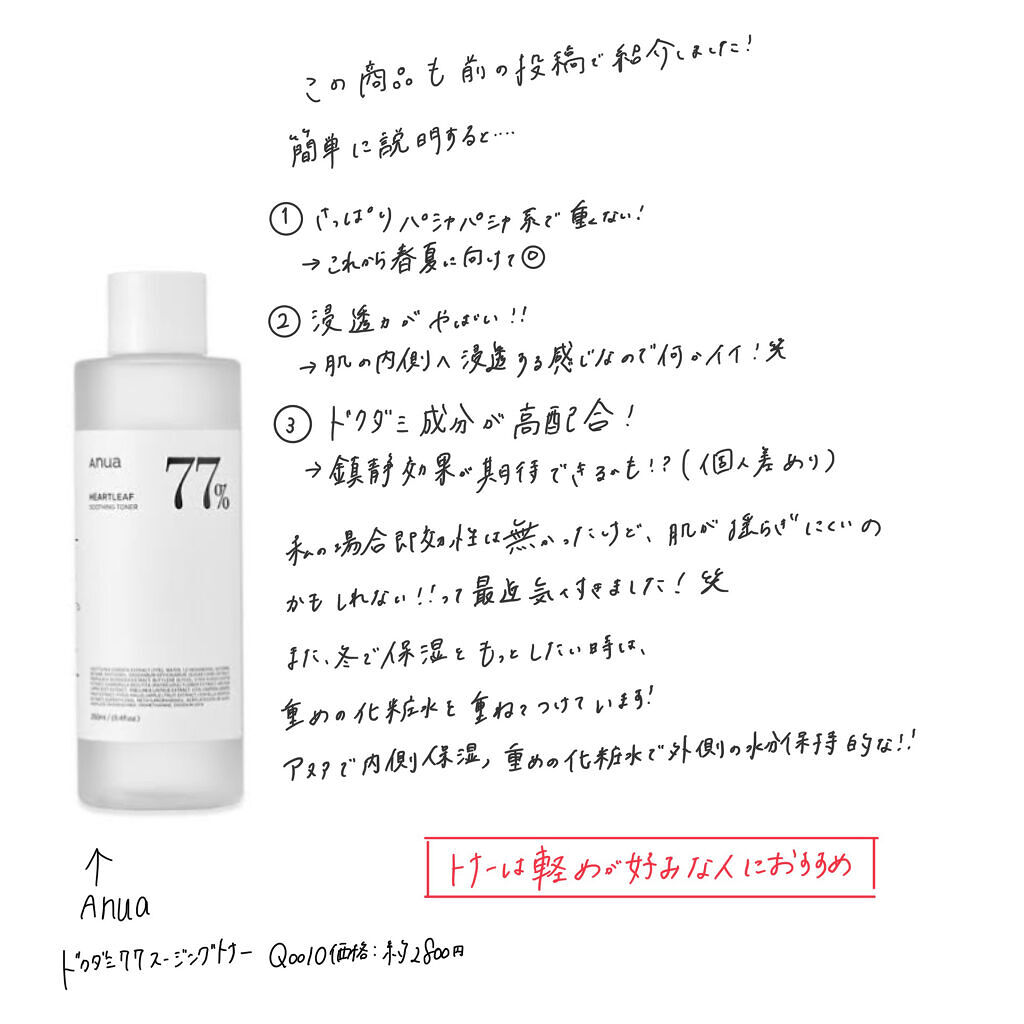 この商品も前の投稿で紹介しました!
簡単に説明すると....
① さっぱりパシャパシャ系で重くない!
→これから春夏に向けて◎
② 浸透力がやばい!!
→肌の内側へ浸透する感じなので何かイイ!笑
③ ドクダミ成分が高配合!
→鎮静効果が期待できるのも!?(個人差あり)
私の場合即効性は無かったけど、肌が揺らぎにくいの
かもしれない!!って最近気付きました!笑
また、冬で保湿をもっとしたい時は、
重めの化粧水を重ねてつけています!
アヌアで内側保湿、重めの化粧水で外側の水分保持的な!!
トナーは軽めが好みな人におすすめ
Anua
77%
HEARTLEAF
SOOTHING TONER
250ml / (8.4fl.oz)
↑
Anua
ドクダミ77スージングトナー Qoo10価格:約2800円